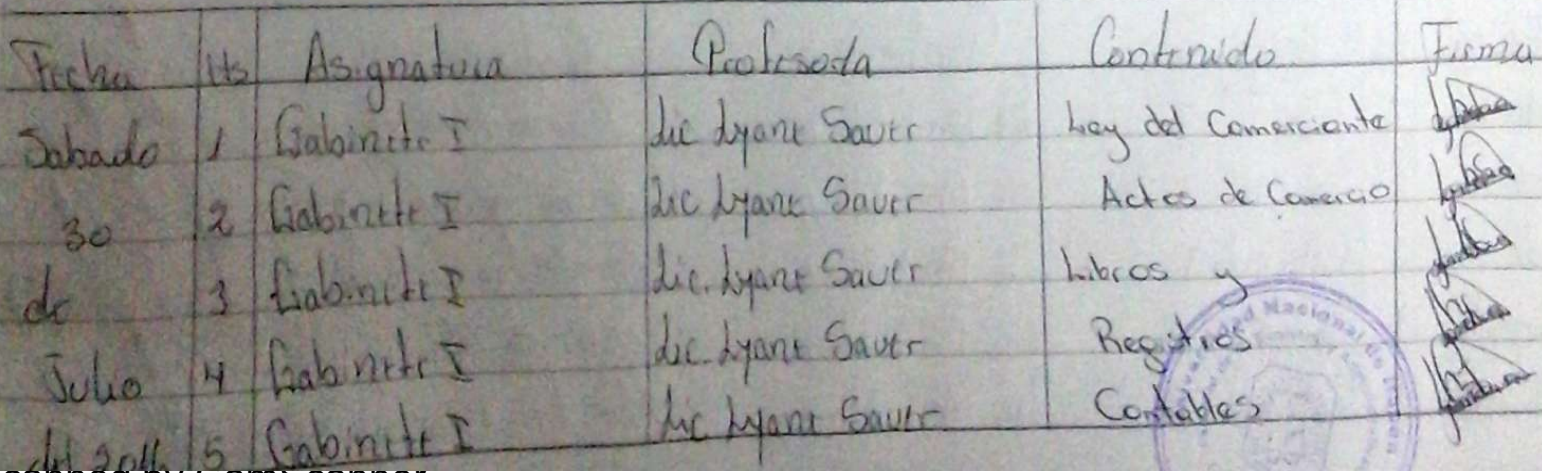 Fecha Hs Asignatura Profesora Contenido Firma
Sabado 1 Gabinete I Lic Lyane Sauer Ley del Comerciante
30 2 Gabinete I Lic Lyane Sauer Actos de Comercio
de 3 Gabinete I Lic. Lyane Sauer Libros y
Julio 4 Gabinete I Lic. Lyane Sauer Registros
del 5 Gabinete I Lic Lyane Sauer Contables
Nacional de